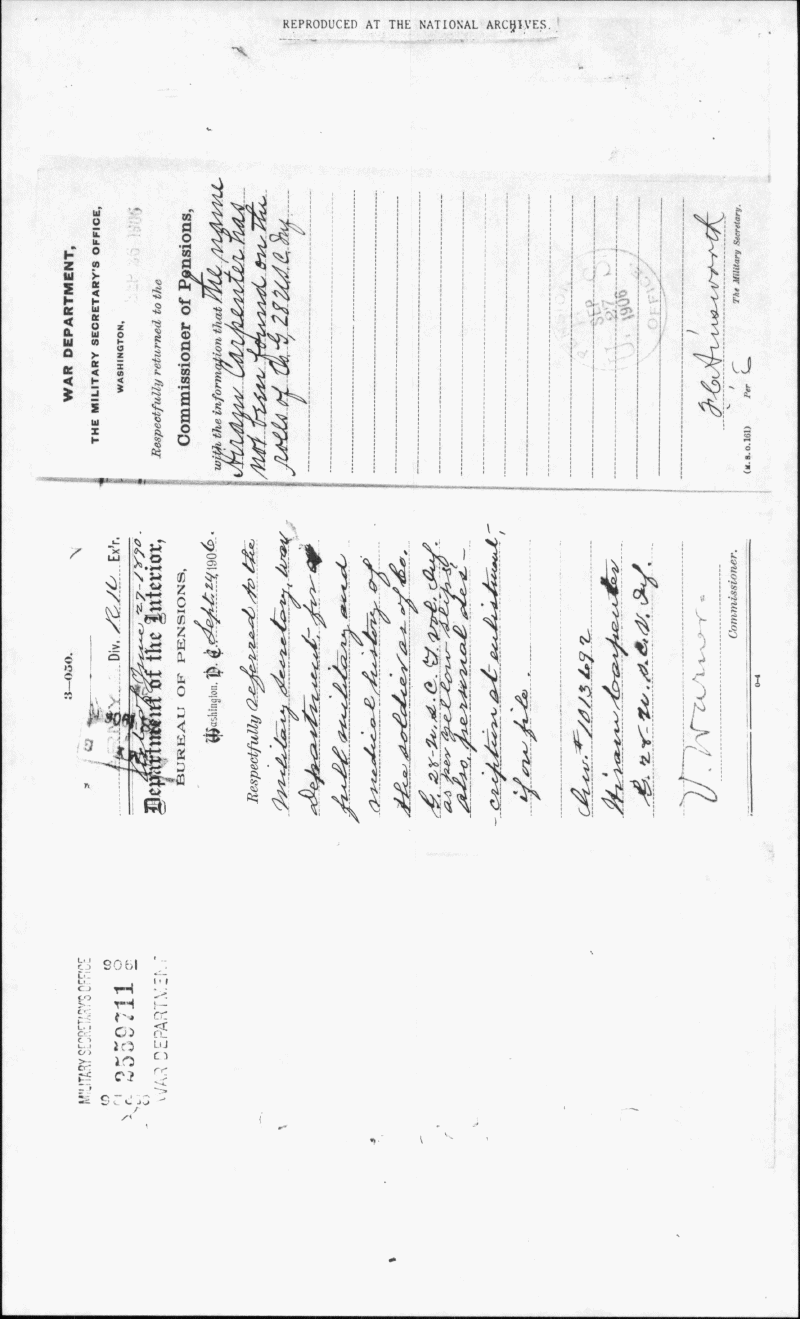 REPRODUCED AT THE NATIONAL ARCHIVES.
3—050.
Div. Ex'r.
June 27-1890.
Department of the Interior,
BUREAU OF PENSIONS,
Washington, D. C., Sept. 24, 1906.
Respectfully referred to the
Military Secretary, War
Department, for a
full military and
medical history of
the soldier as of Co.
G. 28-U.S.C.T. Vol. Inf.
as per yellow slips;
also, personal des-
-cription at enlistment,
if on file.
Inv. # 1013692
Hiram Carpenter
G. 28-U.S.C.V. Inf.
V. Warner
Commissioner.
0—4
WAR DEPARTMENT,
THE MILITARY SECRETARY'S OFFICE,
WASHINGTON, SEP 26 1906
Respectfully returned to the
Commissioner of Pensions,
with the information that The name
Hiram Carpenter has
not been found on the
rolls of Co. G, 28 U.S.C. Inf
PENSION OFFICE
SEP
27
1906
F. C. Ainsworth
The Military Secretary.
Per
(M. S. O. 161)
MILITARY SECRETARY'S OFFICE
1906
2559711
WAR DEPARTMENT